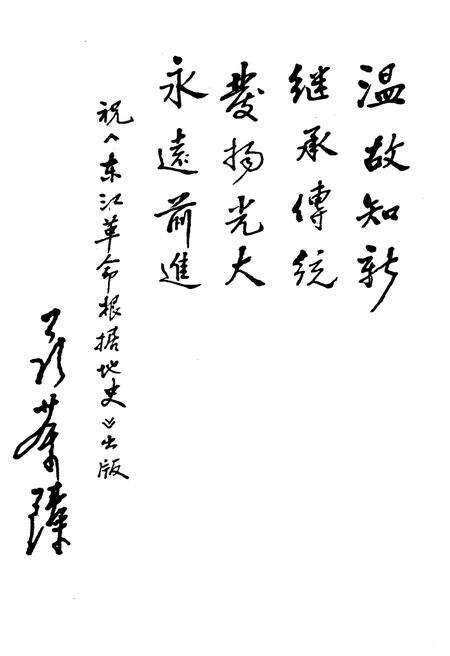 温故知新
继承傳统
發扬光大
永遠前進
祝《东江革命根据地史》出版
聂荣臻